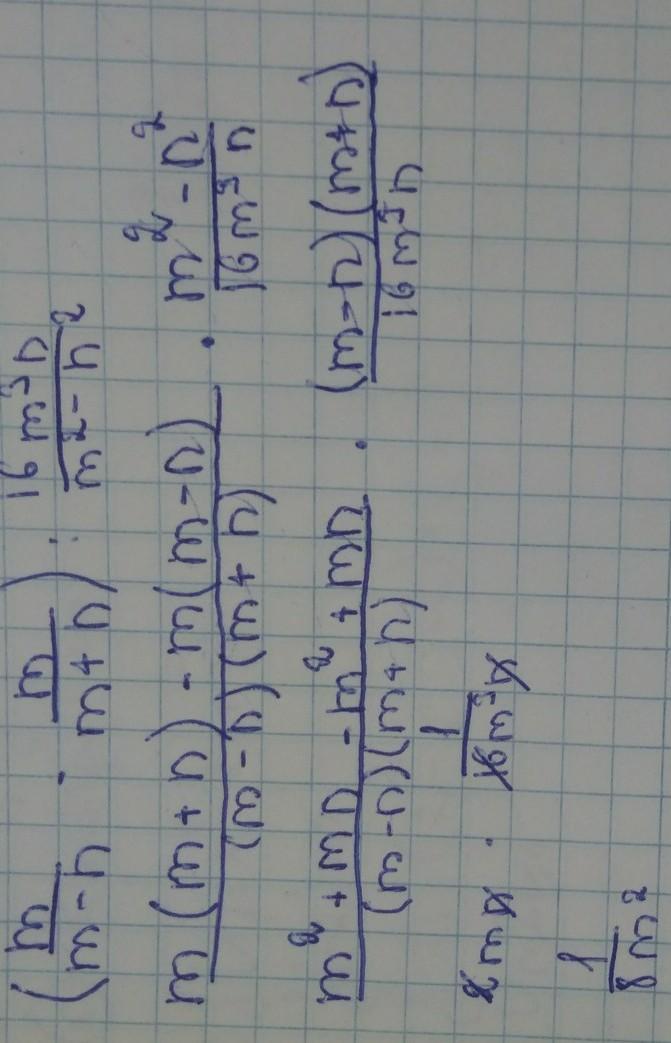 (m/(m-n) · m/(m+n)) : 16m³n/(m²-n²)
(m(m+n) - m(m-n))/((m-n)(m+n)) · (m²-n²)/(16m³n)
(m²+mn - m²+mn)/((m-n)(m+n)) · ((m-n)(m+n))/(16m³n)
2mn · 1/(16m³n)
1/(8m²)